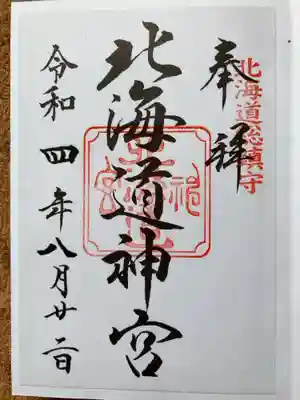 北海道總鎮守
奉拝
北海道神宮
令和四年八月廿二日